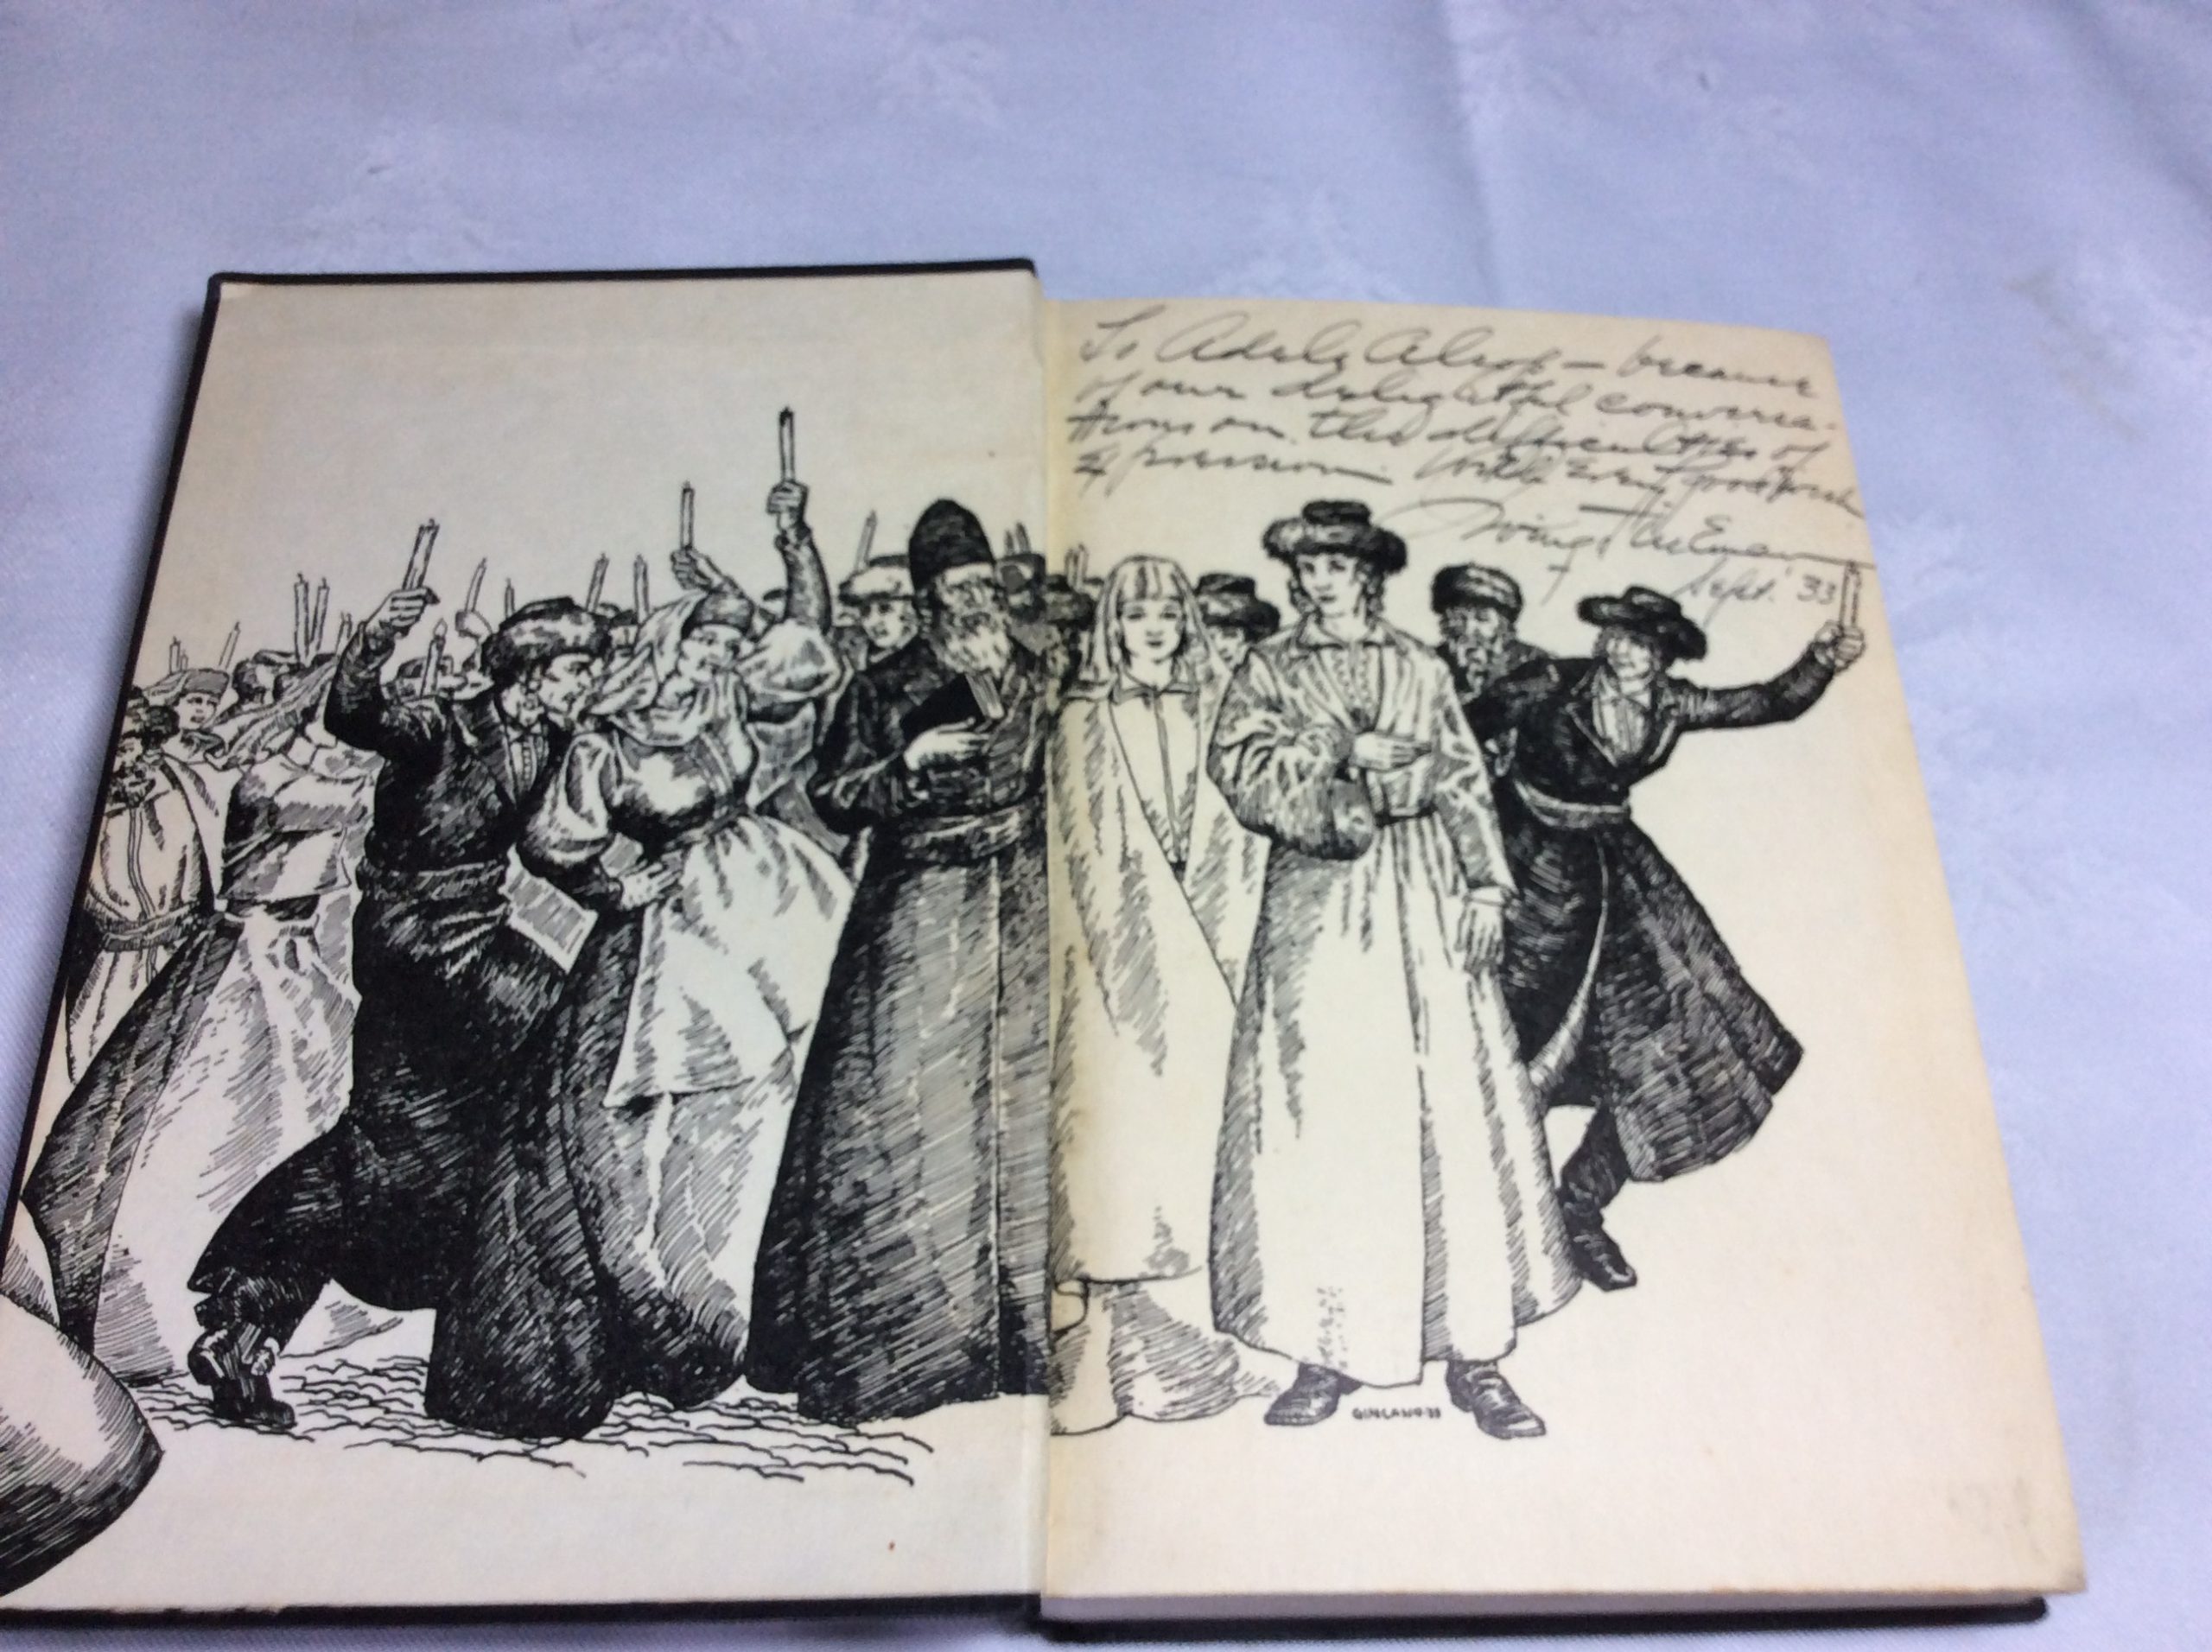 To Adele Alsop — because
of our delightful conversa-
tions on the difficulties of
expression. With every good wish
Irving Fineman
Sept. '33